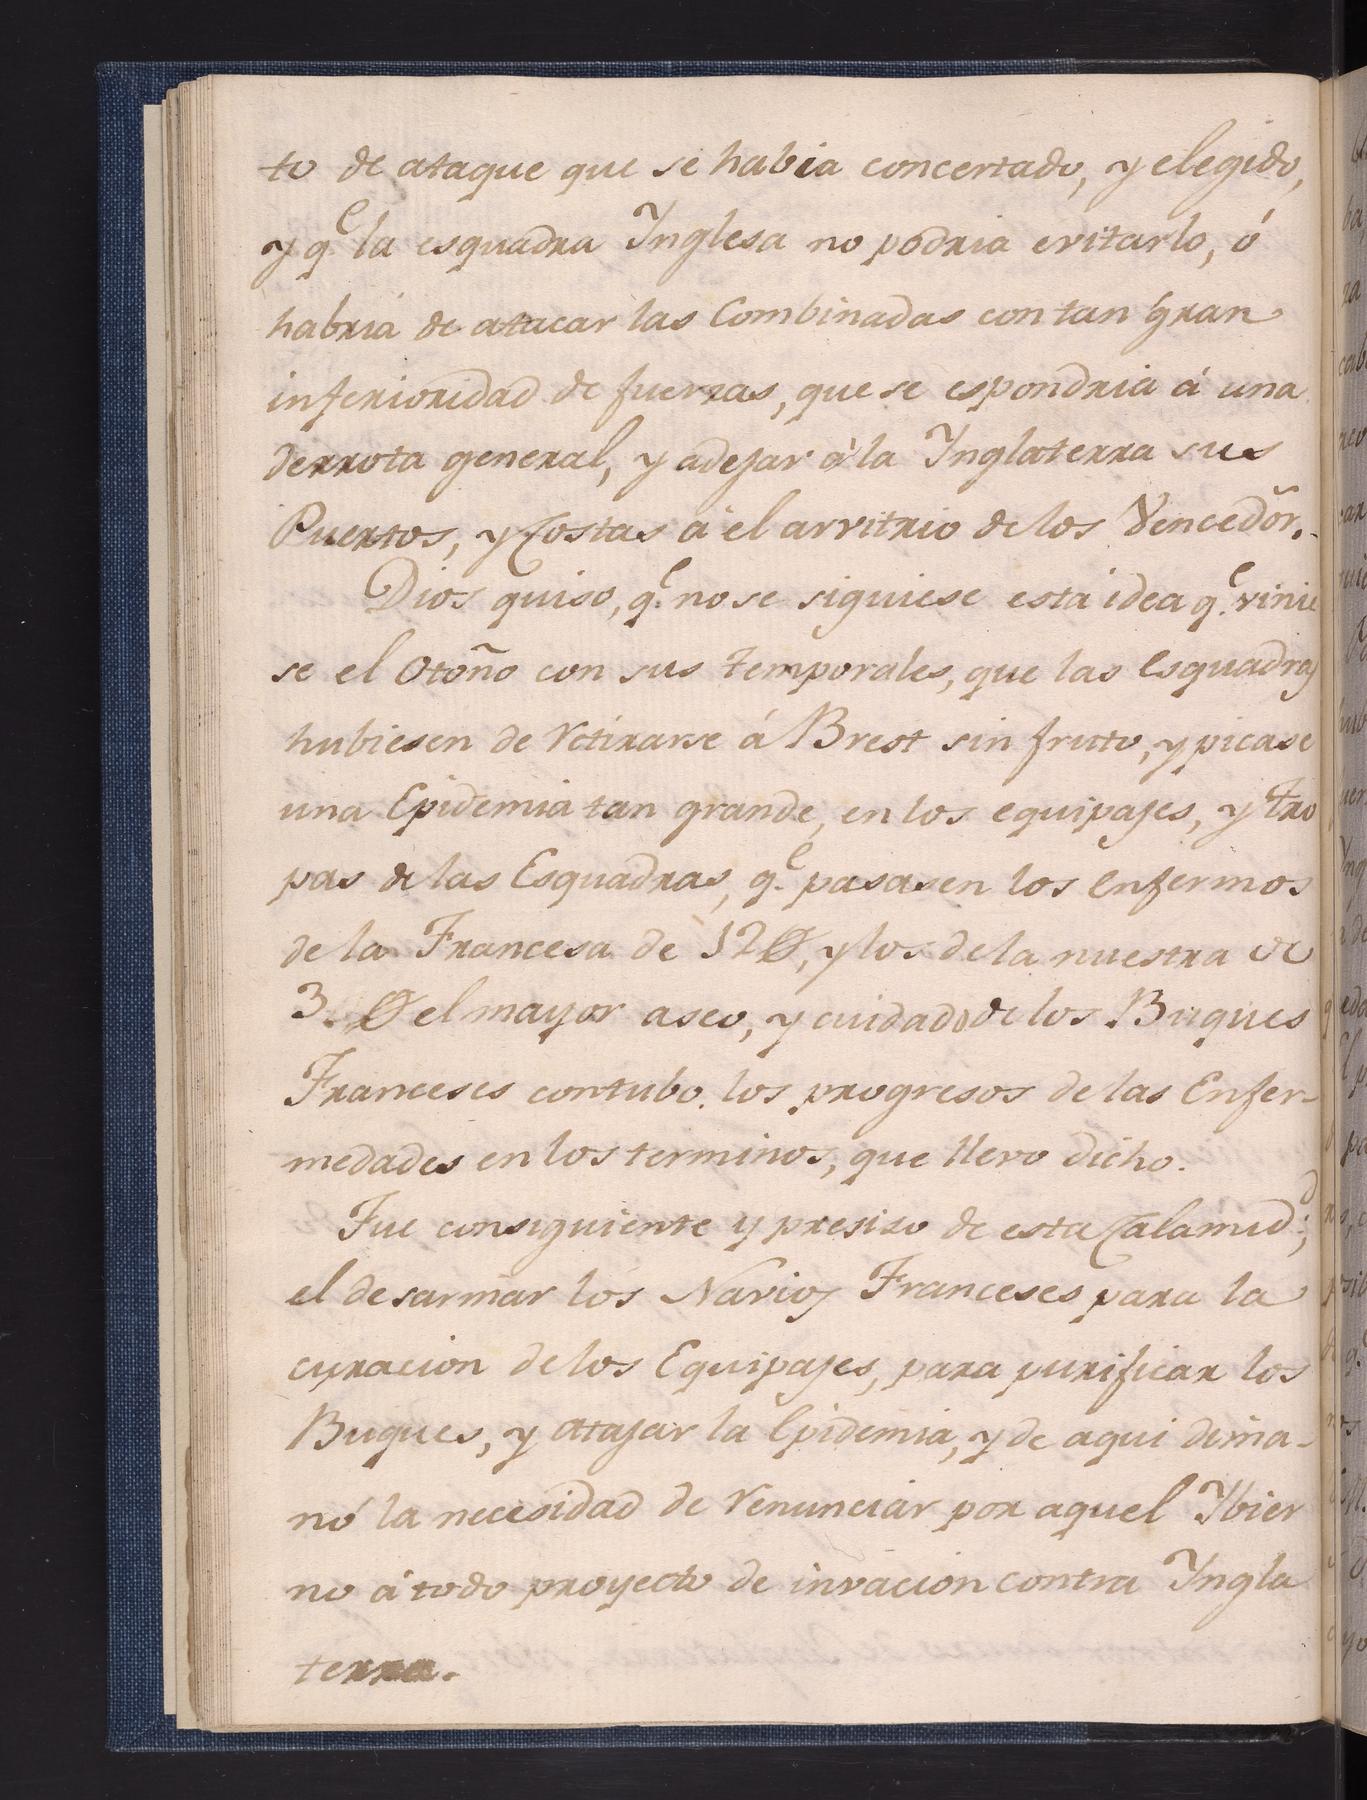 to de ataque que se habia concertado, y elegido,
y q.e la esquadra Ynglesa no podria evitarlo, ó
habria de atacar las Combinadas con tan gran
inferioridad de fuerzas, que se espondria á una
derrota general, y adejar à la Ynglaterra sus
Puertos, y Costas á el arvitrio de los Vencedor̃.
Dios quiso, q.e no se siguiese esta idea q.e vinie
se el Otoño con sus temporales, que las Esquadras
hubiesen de retirarse á Brest sin fruto, y picase
una Epidemia tan grande, en los equipajes, y tro
pas de las Esquadras, q.e pasasen los enfermos
de la Francesa de 12Ø, y los de la nuestra de
3.Ø el mayor aseo, y cuidado de los Buques
Franceses contubo los progresos de las Enfer-
medades en los terminos, que llevo dicho.
Fue consiguiente y presiso de esta Calamid.d,
el desarmar los Navios Franceses para la
curacion de los Equipajes, para purificar los
Buques, y atajar la Epidemia, y de aqui dima-
nó la necesidad de renunciar por aquel Ybier
no á todo proyecto de invacion contra Yngla
terra.